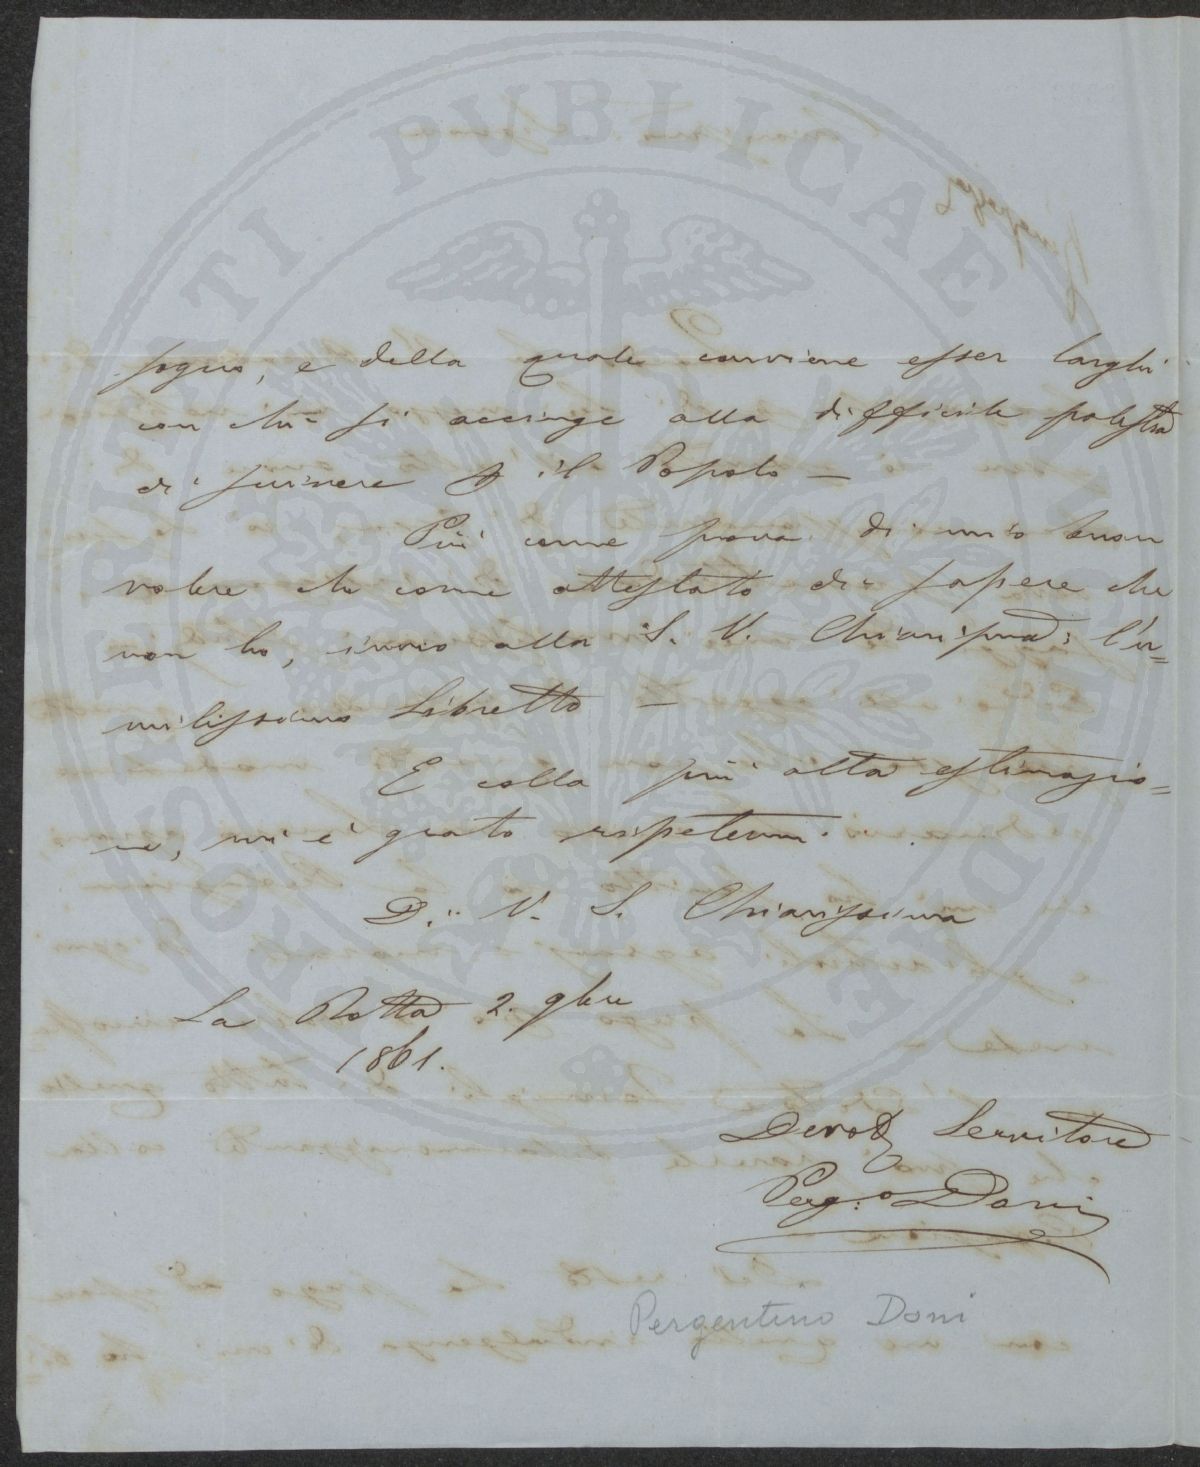 POSTERITATI PUBLICAE PRODE
sogno, e della quale conviene esser larghi
con chi si accinge alla difficile palestra
di scrivere il Popolo —
Più come prova di mio buon
volere che come attestato di sapere che
non ho, invio alla S. V. Chiarissima l'u=
milissimo Libretto —
E colla più alta estimazio=
ne, mi è grato ripetermi.
D. V. S. Chiarissima
La Rotta 2. 9bre
1861.
Devot Servitore
Perg.o Doni
Pergentino Doni